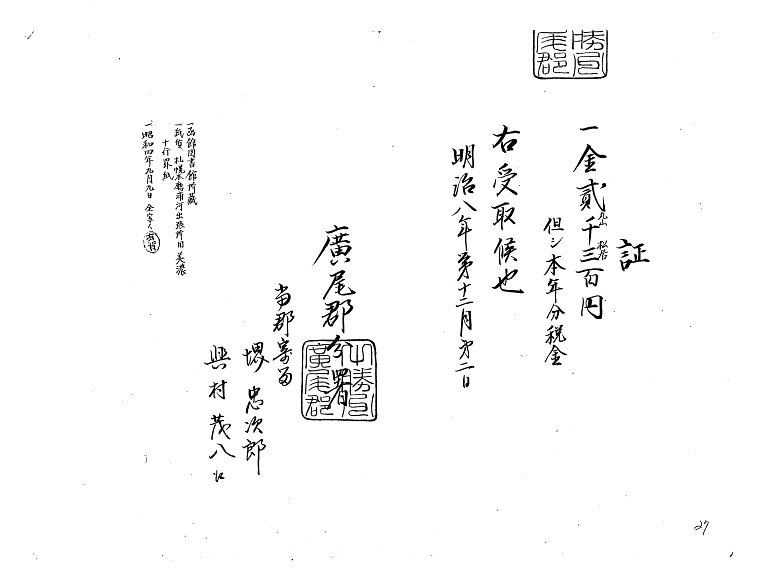 証
一金貳千三百円
但シ本年分税金
右受取候也
明治八年第十二月第二日
廣尾郡分署
当郡寄留
堺 忠次郎
與村 茂八 江
一函館図書館所蔵
一紙質、札幌本廳浦河出張所用 美濃
十行罫紙
一昭和四年九月九日
十勝国
廣尾郡
27